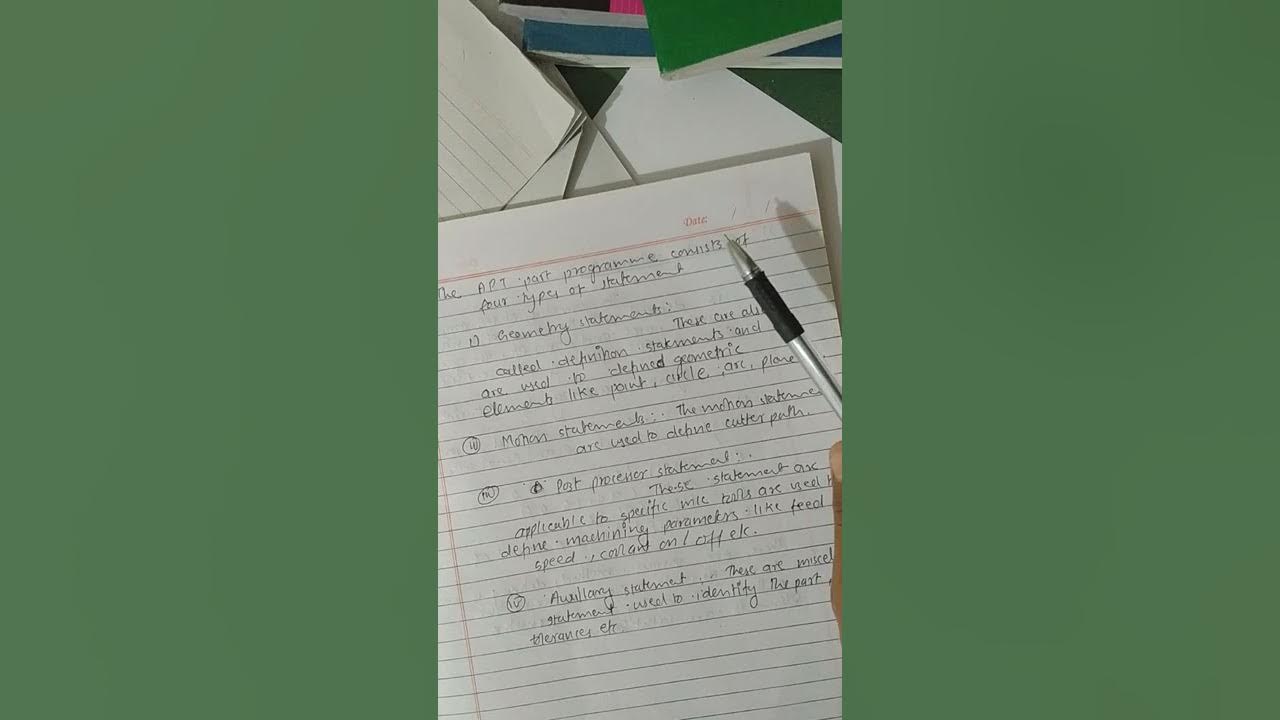 Date: / /
The APT part programme consists of
four types of statement
i) Geometry statements:
These are als
called definition statements and
are used to defined geometric
elements like point, circle, arc, plane
(ii) Motion statements:. The motion stateme
are used to define cutter path.
(iii) Post processor statement:.
These statement are
applicable to specific m/c tools are used t
define machining parameters like feed
speed, on/off etc.
(iv) Auxillary statement: These are miscel
statement used to identify the part,
tolerances etc.